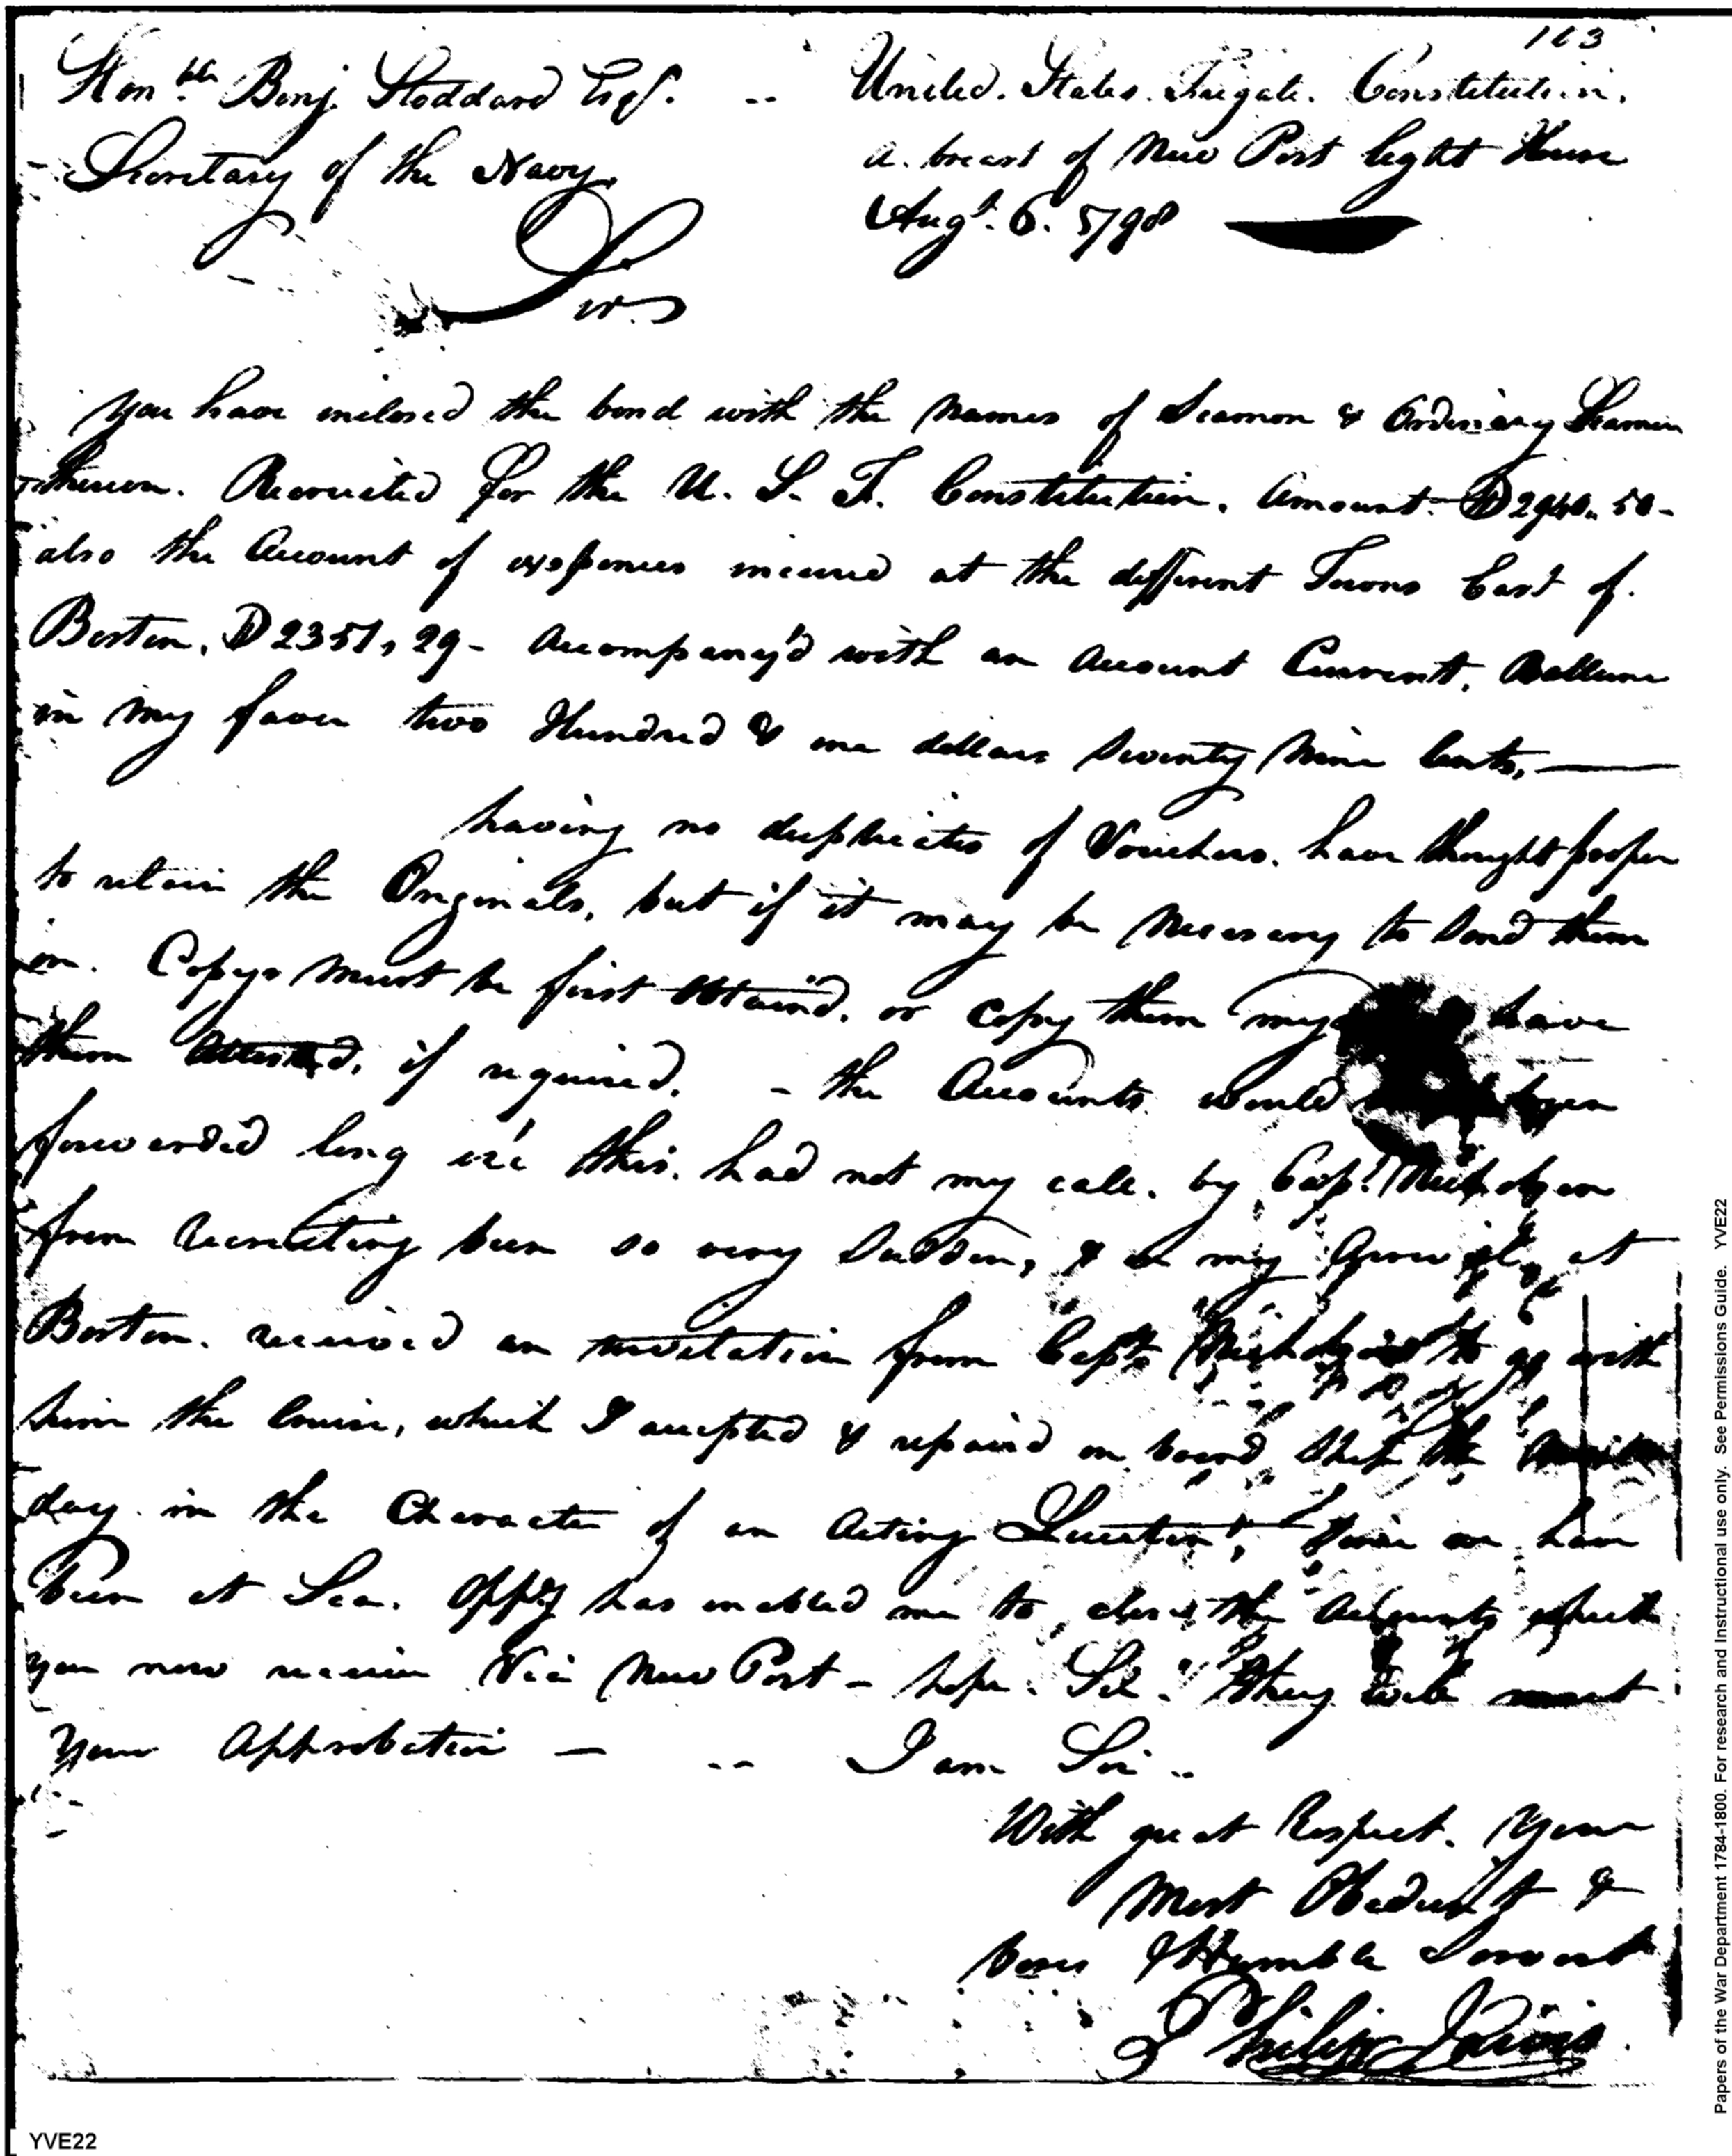 113
Honble Benj Stoddard Esqr. -- United. States. Frigate. Constitution.
Secretary of the Navy. a. breast of New Port light House
Augt. 6. 5/98
Sir
You have inclosed the bond with the Names of Seamen & Ordinary Seamen
thereon. Recruited for the U. S. F. Constitution. Amount. D 2940. 50 -
also the Account of expences incured at the different Towns East of.
Boston. D 2351, 29 - Accompany'd with an Account Current. Ballance
in my favor two Hundred & one dollars Seventy Nine Cents, —
having no duplicates of Vouchers. have thought proper
to retain the Originals, but if it may be Necessary to Send them
on. Copys must be first Obtaind. or copy them have
them Attested, if required. - the Accounts would been
forwarded long ere this. had not my call. by Capt. Nicholson
from Recruiting been so very Sudden, & on my at
Boston. received an invitation from Capt. Nicholson to go with
him the Cruise, which I accepted & repaird on board Ship the
day. in the Character of an Acting Lieutent, Since we have
been at Sea. Oppy has enabled me to close the Accounts which
you now receive Via New Port - hope. Sir. they will meet
Your Approbation — -- I am Sir --
With great Respect. Your
Most Obedient &
very Humble Servant
Philip Jarvis
YVE22
Papers of the War Department 1784-1800. For research and Instructional use only. See Permissions Guide. YVE22